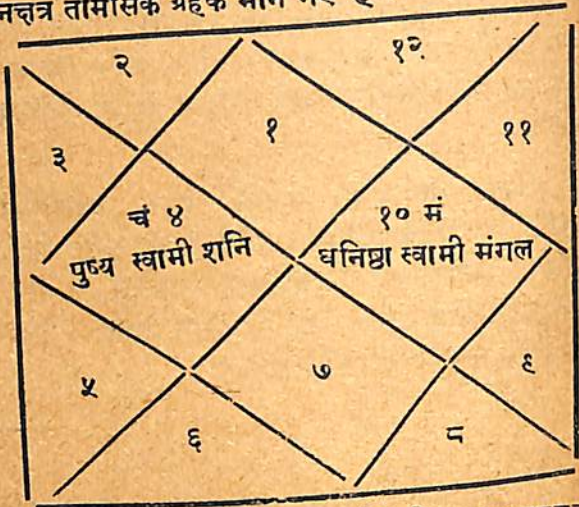 नक्षत्र तामसिक ग्रहके माने गए ह
२
१२
१
११
३
चं ४
१० मं
पुष्य स्वामी शनि
धनिष्ठा स्वामी मंगल
५
७
९
६
८